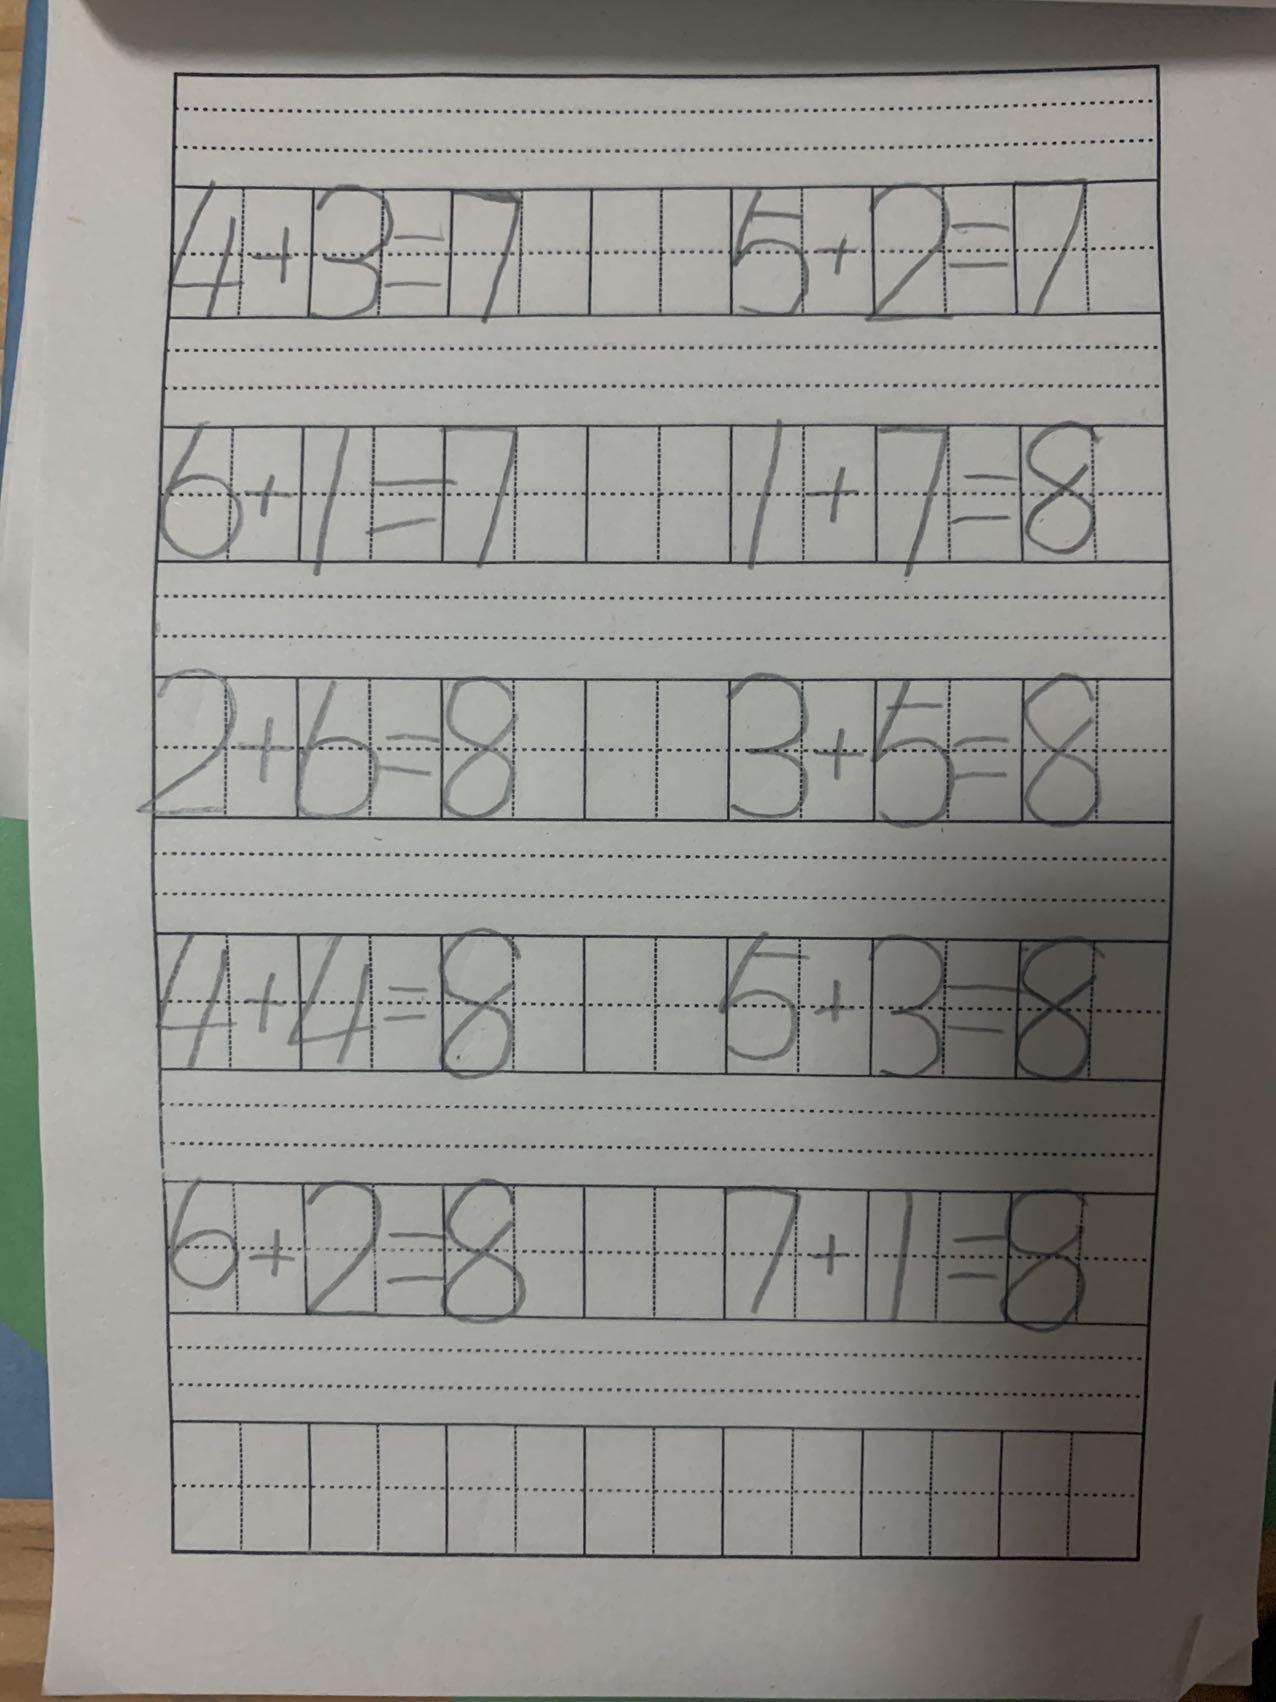 4+3=7 5+2=7
6+1=7 1+7=8
2+6=8 3+5=8
4+4=8 5+3=8
6+2=8 7+1=8